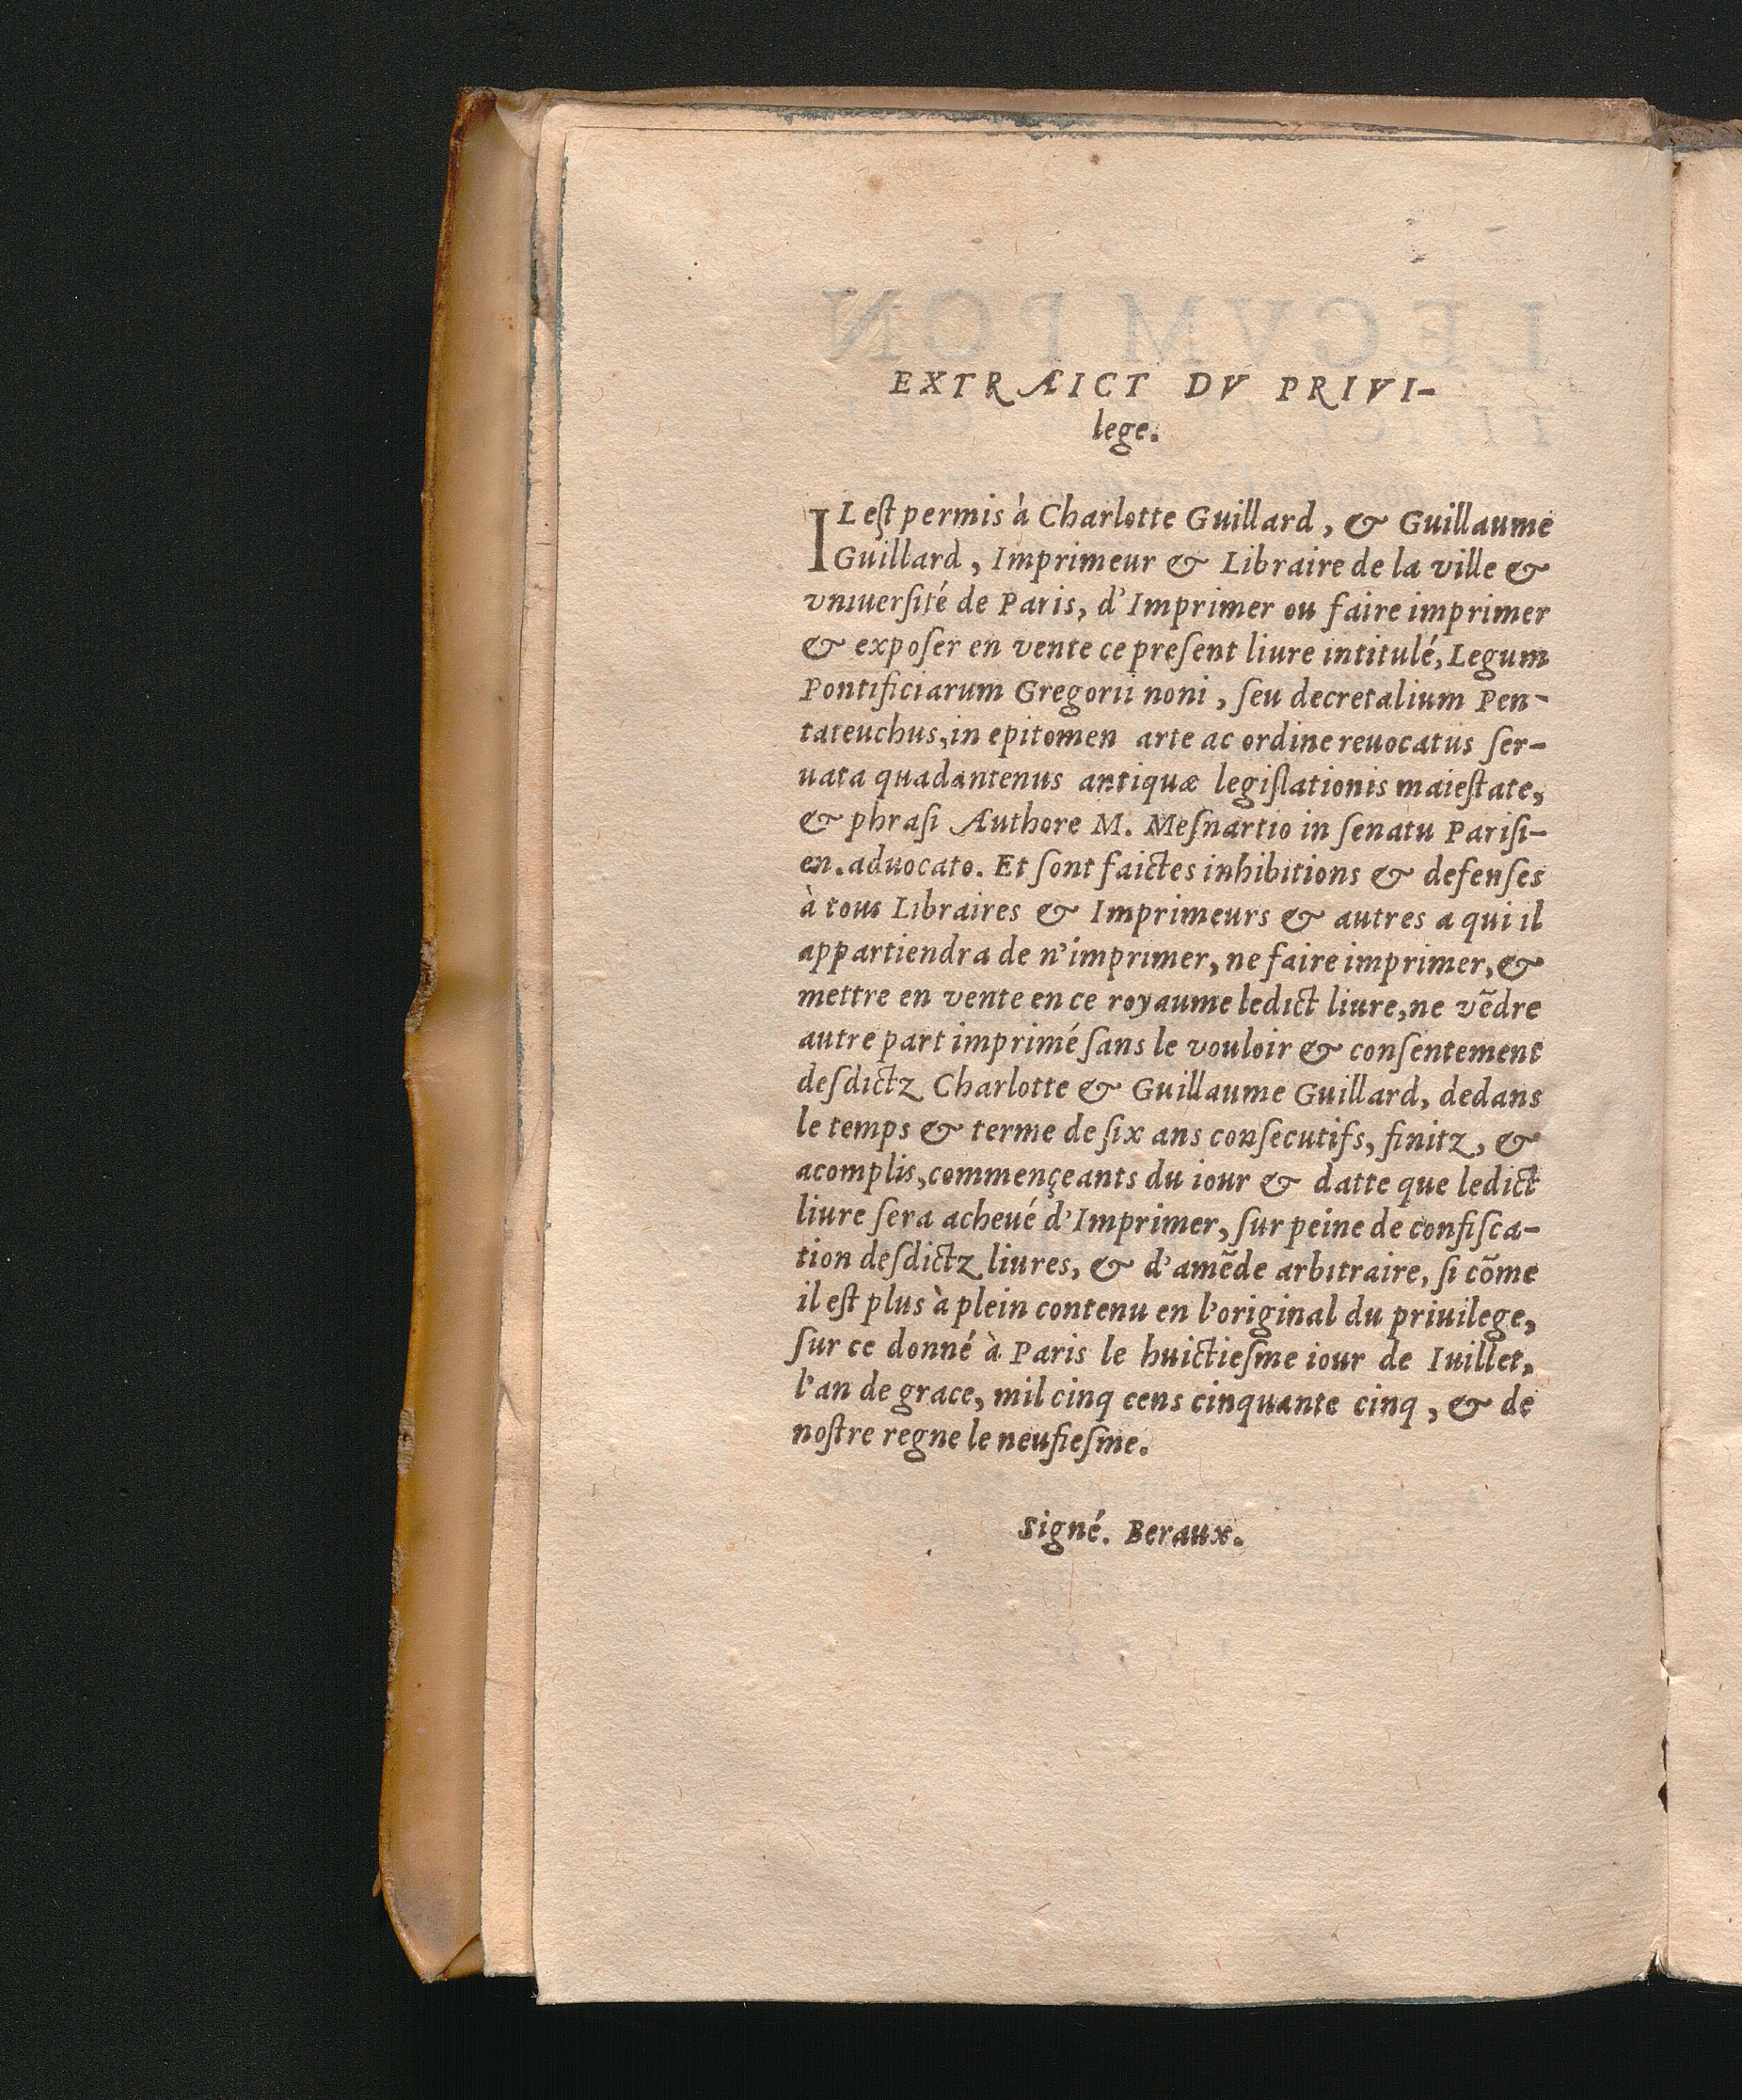 EXTRAICT DV PRIVI-
lege.
IL eſt permis à Charlotte Guillard, & Guillaume
Guillard, Imprimeur & Libraire de la ville &
vniuerſité de Paris, d'Imprimer ou faire imprimer
& expoſer en vente ce preſent liure intitulé, Legum
Pontificiarum Gregorii noni, ſeu decretalium Pen-
tateuchus, in epitomen arte ac ordine reuocatus ſer-
uata quadantenus antiquæ legiſlationis maieſtate,
& phraſi Authore M. Meſnartio in ſenatu Pariſi-
en. aduocato. Et ſont faictes inhibitions & defenſes
à tous Libraires & Imprimeurs & autres a qui il
appartiendra de n'imprimer, ne faire imprimer, &
mettre en vente en ce royaume ledict liure, ne vẽdre
autre part imprimé ſans le vouloir & conſentement
deſdictz Charlotte & Guillaume Guillard, dedans
le temps & terme de ſix ans conſecutifs, finitz, &
acomplis, commençeants du iour & datte que ledict
liure ſera acheué d'Imprimer, ſur peine de confiſca-
tion deſdictz liures, & d'amẽde arbitraire, ſi cõme
il eſt plus à plein contenu en l'original du priuilege,
ſur ce donné à Paris le huictieſme iour de Iuillet,
l'an de grace, mil cinq cens cinquante cinq, & de
noſtre regne le neufieſme.
Signé. Beraux.